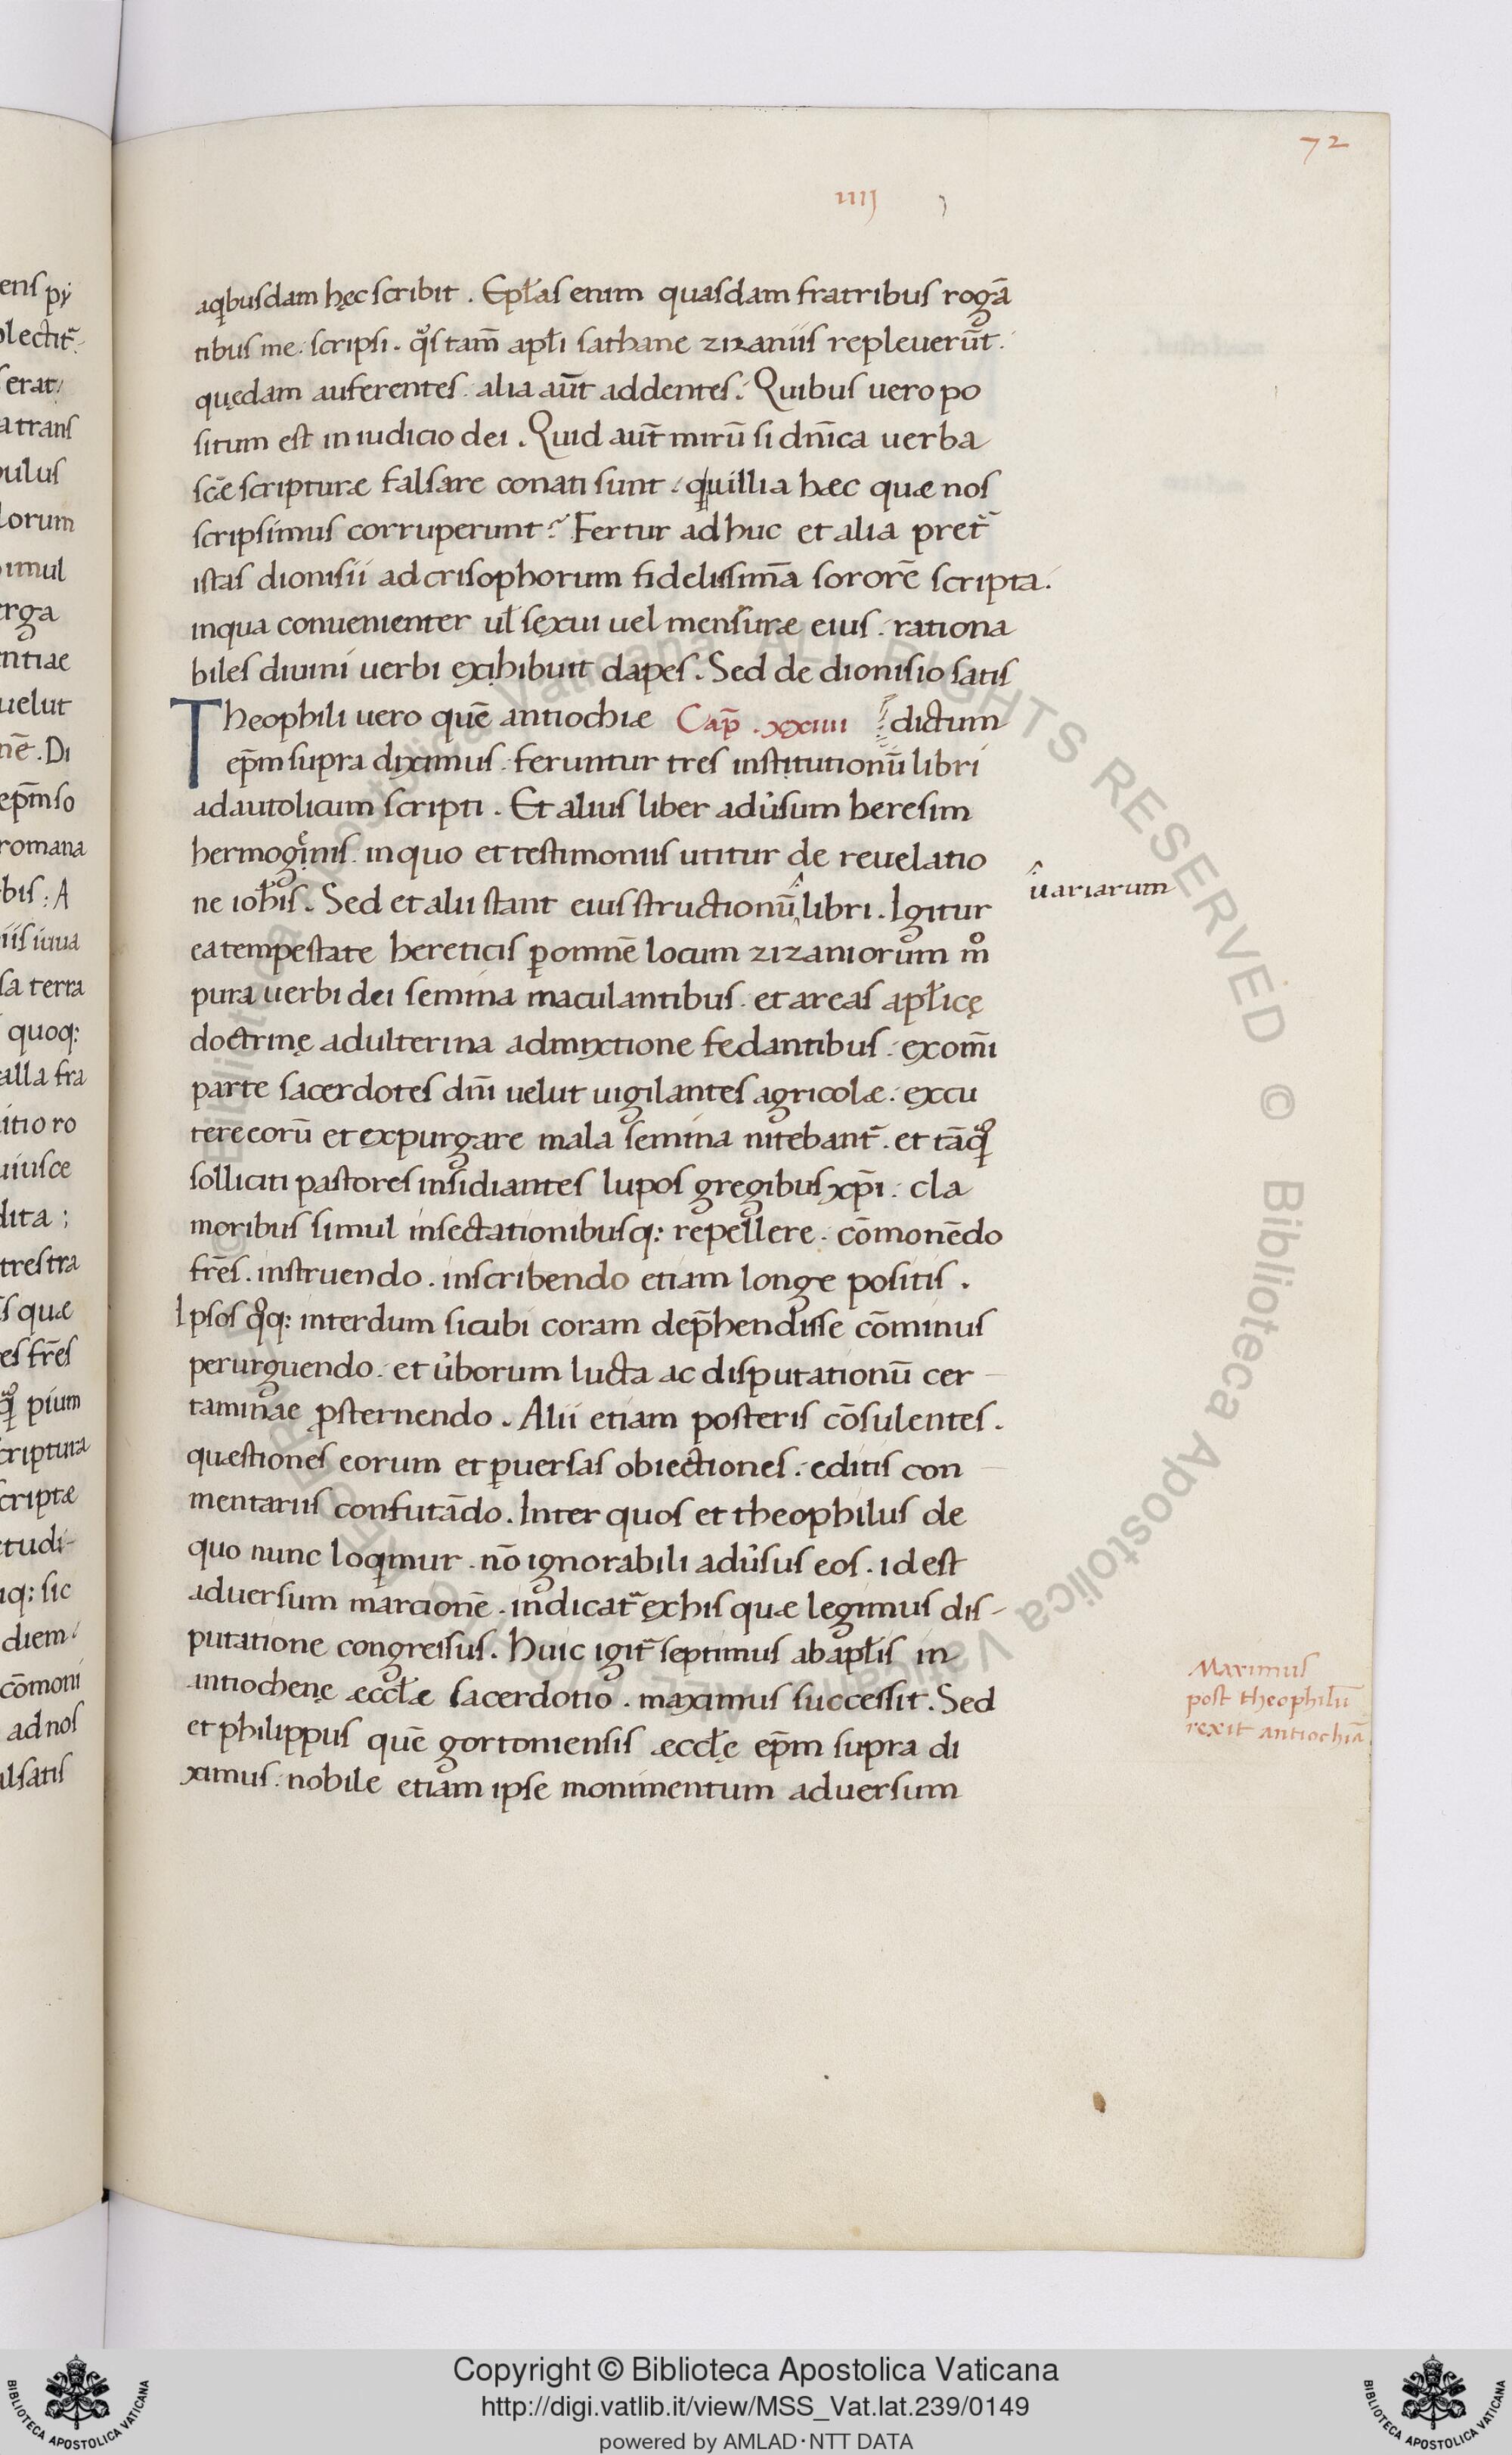 72
iiij
aqibusdam hęc scribit . Epl̄as enim quasdam fratribus rogā
tibus me . scripsi . qͦs tam̄ apl̄i sathane zizaniis repleuerūt .
quędam auferentes . alia aūt addentes . Quibus uero po
situm est in iudicio dei . Quid aūt mirū si dn̄ica uerba
scē scripturæ falsare conati sunt . qui illia hæc quæ nos
scripsimus corruperunt ? Fertur adhuc et alia pret̄
istas dionisii ad crisophorum fidelissimā sororē scripta .
inqua conuenienter ul̄ sexui uel mensuræ eius . rationa
biles diuini uerbi exhibuit dapes . Sed de dionisio satis
Theophili uero quē antiochiæ Cap̄ . xxiiii dictum
ep̄m supra diximus . feruntur tres institutionū libri
ad autolicum scripti . Et alius liber adu̓sum heresim
hermoginis . in quo et testimoniis utitur de reuelatio
ne ioh̄is . Sed et alii stant eius structionū libri . Igitur
uariarum
ea tempestate hereticis ꝑ omnē locum zizaniorum mͦ
pura uerbi dei semina maculantibus . et areas apl̄icę
doctrinę adulterina admixtione fedantibus . ex om̄i
parte sacerdotes dn̄i uelut uigilantes agricolæ . excu
tere eorū et expurgare mala semina nitebant̄ . et tāqͦ
solliciti pastores insidiantes lupos gregibus xp̄i . cla
moribus simul insectationibusq: repellere . cōmonēdo
frēs . instruendo . inscribendo etiam longe positis .
Ipsos qͦq: interdum sicubi coram dep̄hendisse cōminus
perurguendo . et u̓borum lucta ac disputationū cer
taminae ꝓsternendo . Alii etiam posteris cōsulentes .
quæstiones eorum et ꝑuersas obiectiones . editis con
mentariis confutādo . Inter quos et theophilus de
quo nunc loqimur . nō ignorabili adu̓sus eos . id est
aduersum marcionē . indicat̄ ex his quæ legimus dis-
putatione congressus . huic igit̄ septimus ab apl̄is in
antiochenę æccl̄æ sacerdotio . maximus successit . Sed
et philippus quē gortoniensis æccl̄ę ep̄m supra di
ximus . nobile etiam ipse monimentum aduersum
Maximus
post theophilū
rexit antiochiā
Copyright © Biblioteca Apostolica Vaticana
http://digi.vatlib.it/view/MSS_Vat.lat.239/0149
powered by AMLAD·NTT DATA